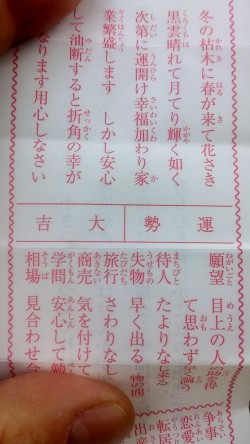 冬の枯木に春が来て花さき
黒雲晴れて月てり輝く如く
次第に運開け幸福加わり家
業繁盛します しかし安心
して油断すると折角の幸が
なります用心しなさい
運勢 大吉
願望 目上の人
て思わず
待人 たよりなく来る
失物 早く出る 物の間
旅行 さわりなし
商売 気を付けて
学問 安心して勉
相場 見合わせ
争事
恋愛
転居
出産